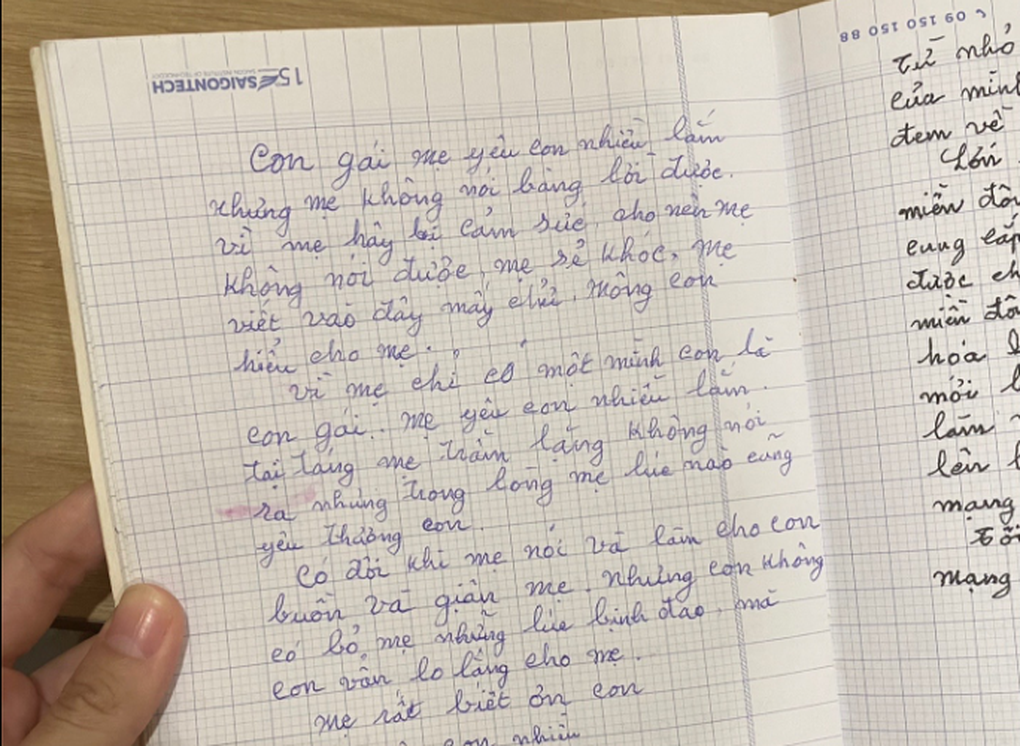 15 SAIGONTECH
SAIGON INSTITUTE OF TECHNOLOGY
Con gái mẹ yêu con nhiều lắm
nhưng mẹ không nói bằng lời được.
vì mẹ hây bị cảm súc, cho nên mẹ
không nói được, mẹ sẻ khóc, mẹ
viết vào đây mấy chử. mông con
hiểu cho mẹ.
vì mẹ chỉ có một mình con là
con gái. mẹ yêu con nhiều lắm.
tại táng mẹ trầm lặng không nói
ra nhưng trong lòng mẹ lúc nào cũng
yêu thương con.
Có đôi khi mẹ nói và làm cho con
buồn và giận mẹ. nhưng con không
có bỏ mẹ những lúc bịnh đao. mà
con vẫn lo lắng cho mẹ.
mẹ rất biết ơn con
con nhiều
09 150 150 88
từ nhỏ
của mình
đem về
Lớn
miền đôn
cung cấp
được ch
miền đô
hóa
mỏi
làm
lên
mạng
Tôi
mạng